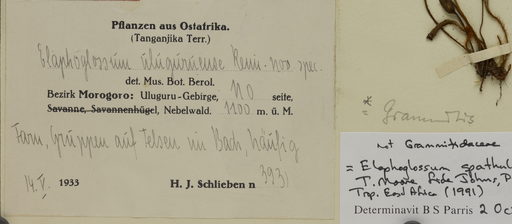 Pflanzen aus Ostafrika.
(Tanganjika Terr.)
Elaphoglossum uluguruense Reim. nov. spec.
det. Mus. Bot. Berol.
Bezirk Morogoro: Uluguru-Gebirge, NO seite,
Savanne, Savannenhügel, Nebelwald. 1100 m. ü. M.
Farn, Gruppen auf Felsen im Bach, häufig
14. V. 1933 H. J. Schlieben n 3931
* Grammitis
Not Grammitidaceae
= Elaphoglossum spathul
T. Moore fide Johns, P
Trop. East Africa (1991)
Determinavit B S Parris 2 Oc